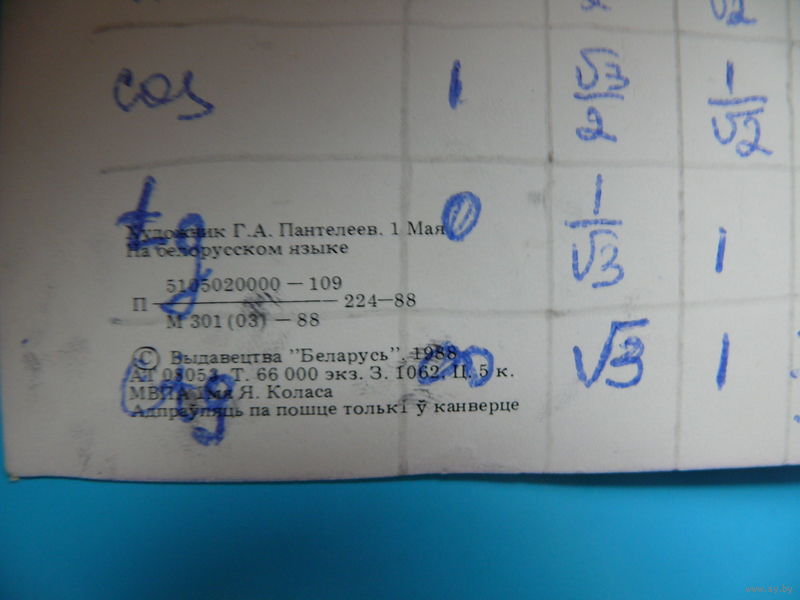 √2
cos 1 √3/2 1/√2
tg 0 1/√3 1
Художник Г.А. Пантелеев. 1 Мая
На белорусском языке
5105020000 — 109
П ——— 224—88
М 301 (03) — 88
© Выдавецтва "Беларусь", 1988
АТ 08053. Т. 66 000 экз. З. 1062. Ц. 5 к.
МВПА імя Я. Коласа
Адпраўляць па пошце толькі ў канверце
ctg ∞ √3 1
www.ay.by